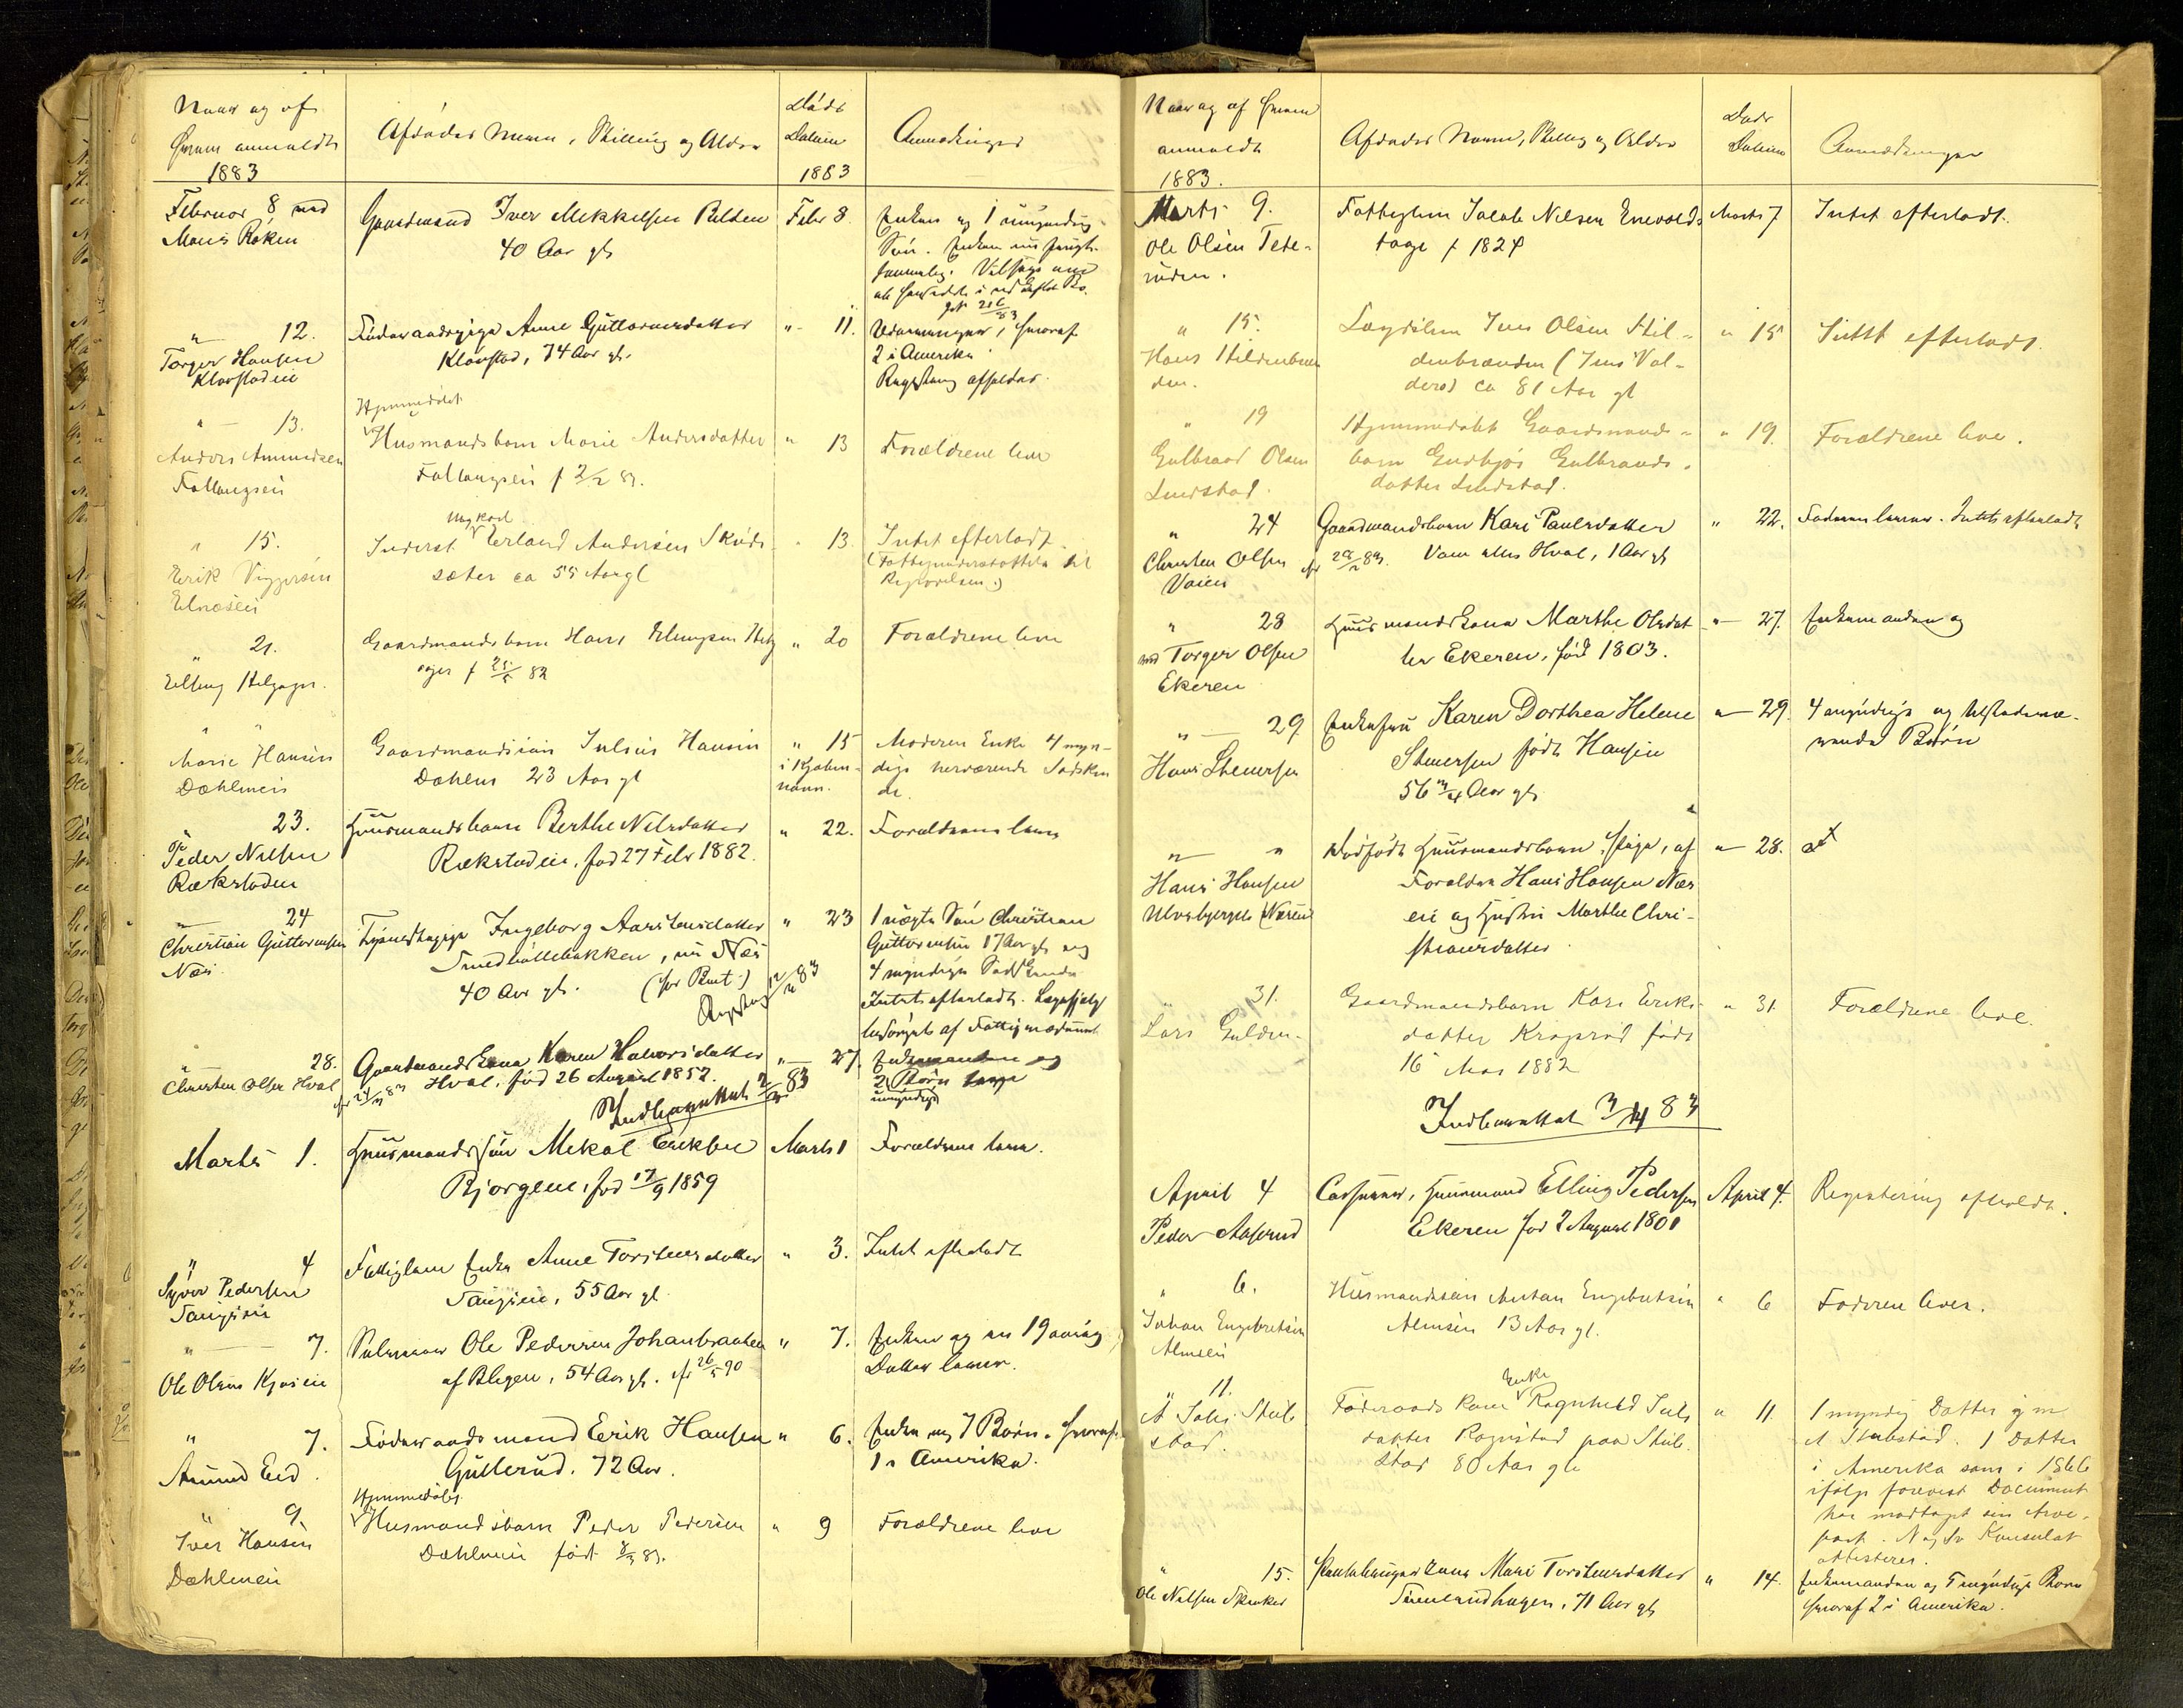 Naar og af
Hvem anmeldt
1883
Afdødes Navn, Stilling og Alder
Døds
Datum
1883
Anmærkninger
Februar 8 ved
Maris Røken
Gaardmand Iver Mekkelsen Belden
40 Aar gl
Febr 8.
Enken og 1 umyndig
Søn.
" 12.
Torger Hansen
Klævstadeie
Føderaadspige Anne Guttormsdatter
Klævstad, 74 Aar gl.
" 11.
Udarvninger, hvoraf
2 i Amerika
" 13.
Anders Amundsen
Fallangseie
Hjemmedøbt
Husmandsbarn Marie Andersdatter
Fallangseie f 2/2 83.
" 13
Forældrene lever
" 15.
Erik Viggersen
Elnæseie
Ungkarl
Inderst Erland Andersen Skuds
sæter ca 55 Aar gl
" 13.
Intet efterladt
" 21.
Elling Helgager.
Gaardmandsbarn Hans Ellingsen Helg
ager f 25/5 82
" 20
Forældrene lever
" "
Marie Hansen
Dæhleneie
Gaardmandssøn Julius Hansen
Dæhlen 23 Aar gl
" 15
i Kjøben-
havn.
Moderen Enke 4 myn-
dige nærværende Sødsken
de.
" 23.
Peder Nilsen
Rækstadeie
Huusmandsbarn Berthe Nilsdatter
Rækstadeie, fød 27 Febr 1882.
" 22.
Forældrene lever
" 24
Christian Guttormsen
Næs
Tjenestepige Ingeborg Aaristensdatter
Smedhøllebakken, nu Næs
40 Aar gl.
" 23
1 uægte Søn Christian
Guttormsen 17 Aar gl og
4 myndige Sødskende
Intet efterladt.
besørget af Fattigvæsenet
" 28.
Christen Olsen Hval
Gaardmandskona Karen Halvorsdatter
Hval, fød 26 August 1857.
" 27.
Enkemanden og
2 Børn
umyndige
Indberettet 2/3 83
Marts 1.
Huusmandssøn Mekal Eriksen
Bjørgeeie, fød 17/9 1859
Marts 1
Forældrene lever.
" 4
Syver Pedersen
Tangeeie
Fattiglem Enke Anne Torstensdatter
Tangeeie, 55 Aar gl
" 3.
Intet efterladt
" 7.
Ole Olsen Kjoseie
Selveier Ole Pedersen Johanbraaten
af Blegen, 54 Aar gl. 26/5 90
" 7.
Enken og en 19 aarig
Datter lever.
" 7.
Amund Eid.
Føderaadsmand Erik Hansen
Gullerud. 72 Aar.
" 6.
Enke og 7 Børn, hvoraf
1 i Amerika.
" 9.
Iver Hansen
Dæhleneie
Hjemmedøbt
Husmandsbarn Peder Pedersen
Dæhleneie født 8/3 83.
" 9
Forældrene lever
Naar og af Hvem
anmeldt
1883.
Afdødes Navn, Stilling og Alder
Døds
Datum
Anmærkninger
Marts 9.
Ole Olsen Tete-
ruden.
Fattiglem Jacob Nilsen Enevolds
hage f 1824
Marts 7
Intet efterladt.
" 15.
Hans Hildenbræn
den.
Lægdslem Jens Olsen Hil-
denbrænden (Jens Val-
ders) ca 81 Aar gl
" 15
Intet efterladt.
" 19
Gulbrand Olsen
Lundstad.
Hjemmedøbt Gaardmands-
barn Gudbjør Gulbrands-
datter Lundstad.
" 19.
Forældrene lever.
" 24
Christen Olsen
Vaien
Gaardmandsbarn Kari Paulsdatter
Vaien eller Hval, 1 Aar gl
" 22.
Faderen lever. Intet efterladt
" 28
ved Torger Olsen
Ekeren
Huusmandskona Marthe Olsdat
ter Ekeren, fød 1803.
" 27.
Enkemanden og
" 29
Hans Stenersen
Enkefru Karen Dorthea Helene
Stenersen født Hansen
56 3/4 Aar gl
" 29.
4 myndige og tilstedevæ-
rende Børn
" "
Hans Hansen
Ulvsbjerget (Næseie
Dødfødt Huusmandsbarn, Pige, af
Forældre Hans Hansen Næs
eie og Hustru Marthe Chri-
stiansdatter
" 28.
" 31.
Lars Gulden.
Gaardmandsbarn Kari Eriks-
datter Kroprud født
16 Mai 1882
" 31.
Forældrene leve.
Indberettet 3/4 83
April 4
Peder Aaserud
Huusmand Elling Pedersen
Ekeren fød 2 August 1801
April 4.
Registrering afholdt.
" 6.
Johan Engebretsen
Almseie
Husmandssøn Anton Engebretsen
Almseie 13 Aar gl.
" 6
Faderen lever.
" 11.
A Johs. Stub
stad.
Føderaads kone Enke Ragnhild Juls
datter Rognstad paa Stub
stad 80 Aar gl
" 11.
1 myndig Datter g m
A Stubstad. 1 Datter
i Amerika som i 1866
ifølge forevist Document
har modtaget sin Arve-
part. Konsulat
attesteres.
" 15.
Ole Nilsen Skinker
Kona Mari Torstensdatter
71 Aar gl
" 14.
Enkemanden og 5 myndige Børn
hvoraf 2 i Amerika.